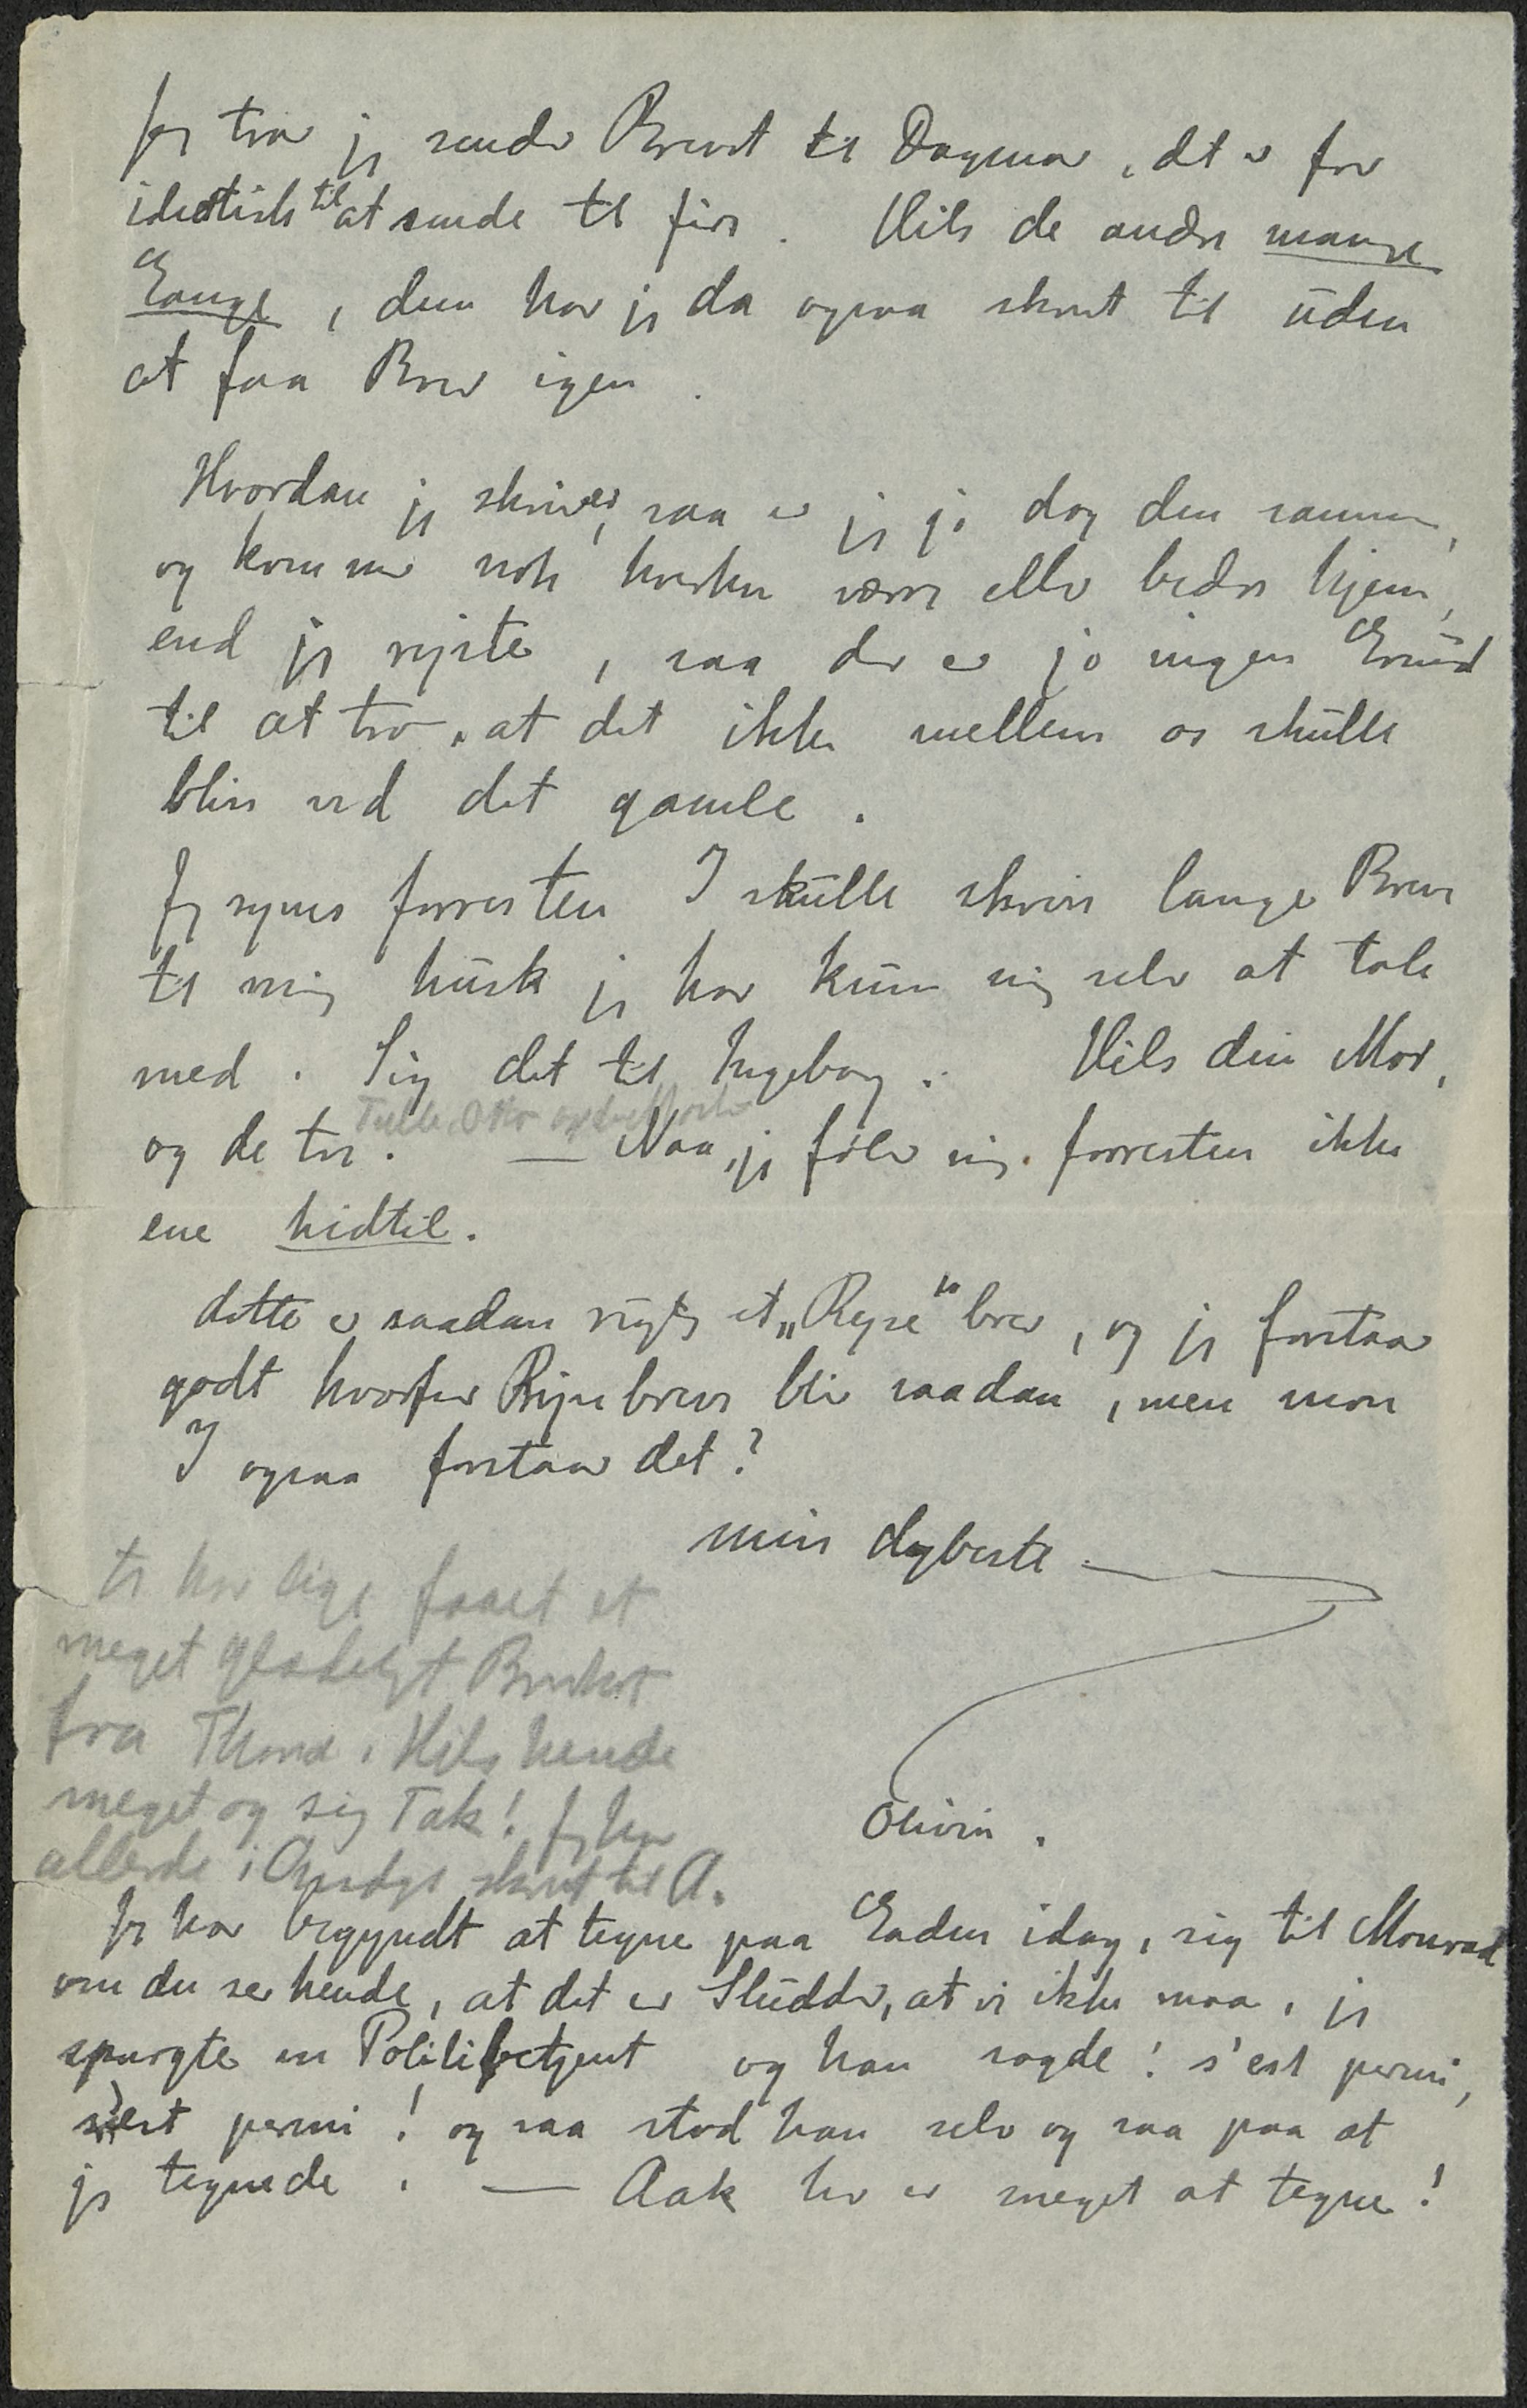 Jeg tror jeg sender Brevet til Dagmar, det er for
idiotisk til at sende til fire. Hils de andre mange
Gange, dem har jeg da ogsaa skrevet til uden
at faa Brev igen.
Hvordan jeg skriver, saa er jeg jo dog den samme,
og kommer nok hverken værre eller bedre hjem,
end jeg rejste, saa der er jo ingen Grund
til at tro, at det ikke mellem os skulle
blive ved det gamle.
Jeg synes forresten I skulle skrive lange Breve
til mig husk jeg har kun mig selv at tale
med. Sig det til Ingeborg. Hils din Mor,
Tulle, Otto
og de tre. — Naa, jeg føler mig forresten ikke
ene hidtil.
dette er saadan rigtig et „Rejse" brev, og jeg forstaar
godt hvorfor Rejsebreve blir saadan, men mon
I ogsaa forstaar det?
min dybeste —
har lige faaet et
meget glædeligt Brevkort
fra Thora. Hils hende
meget og sig Tak! Jeg har
allerede i skrevet til A.
Olivia.
Jeg har begyndt at tegne paa Gaden idag, sig til Monrad
om du ser hende, at det er Sludder, at vi ikke maa, jeg
spurgte en Politibetjent og han sagde: s'est permi,
s'est permi! og saa stod han selv og saa paa at
jeg tegnede. — Aak her er meget at tegne!